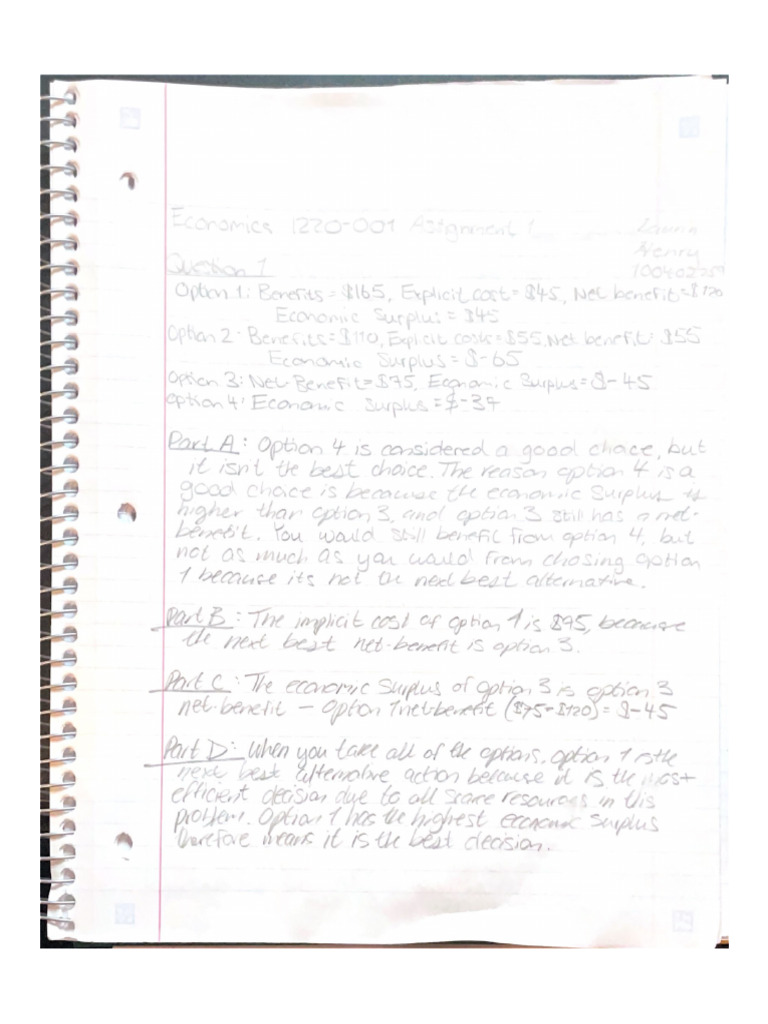 Economics 1220-001 Assignment 1
Henry
Question 1
Option 1: Benefits = $165, Explicit cost = $45, Net benefit = $120
Economic Surplus = $45
Option 2: Benefits = $110, Explicit costs = $55, Net benefit: $55
Economic Surplus = $-65
Option 3: Net-Benefit = $75, Economic Surplus = $-45
Option 4: Economic Surplus = $-37
Part A: Option 4 is considered a good choice, but
it isn't the best choice. The reason option 4 is a
good choice is because the economic surplus is
higher than option 3, and option 3 still has a net-
benefit. You would still benefit from option 4, but
not as much as you would from chosing option
1 because its not the next best alternative.
Part B: The implicit cost of option 1 is $75, because
the next best net-benefit is option 3.
Part C: The economic surplus of option 3 is option 3
net-benefit - Option 1 net-benefit ($75-$120) = $-45
Part D: When you take all of the options, option 1 is the
next best alternative action because it is the most
efficient decision due to all scare resources in this
problem. Option 1 has the highest economic surplus
therefore means it is the best decision.